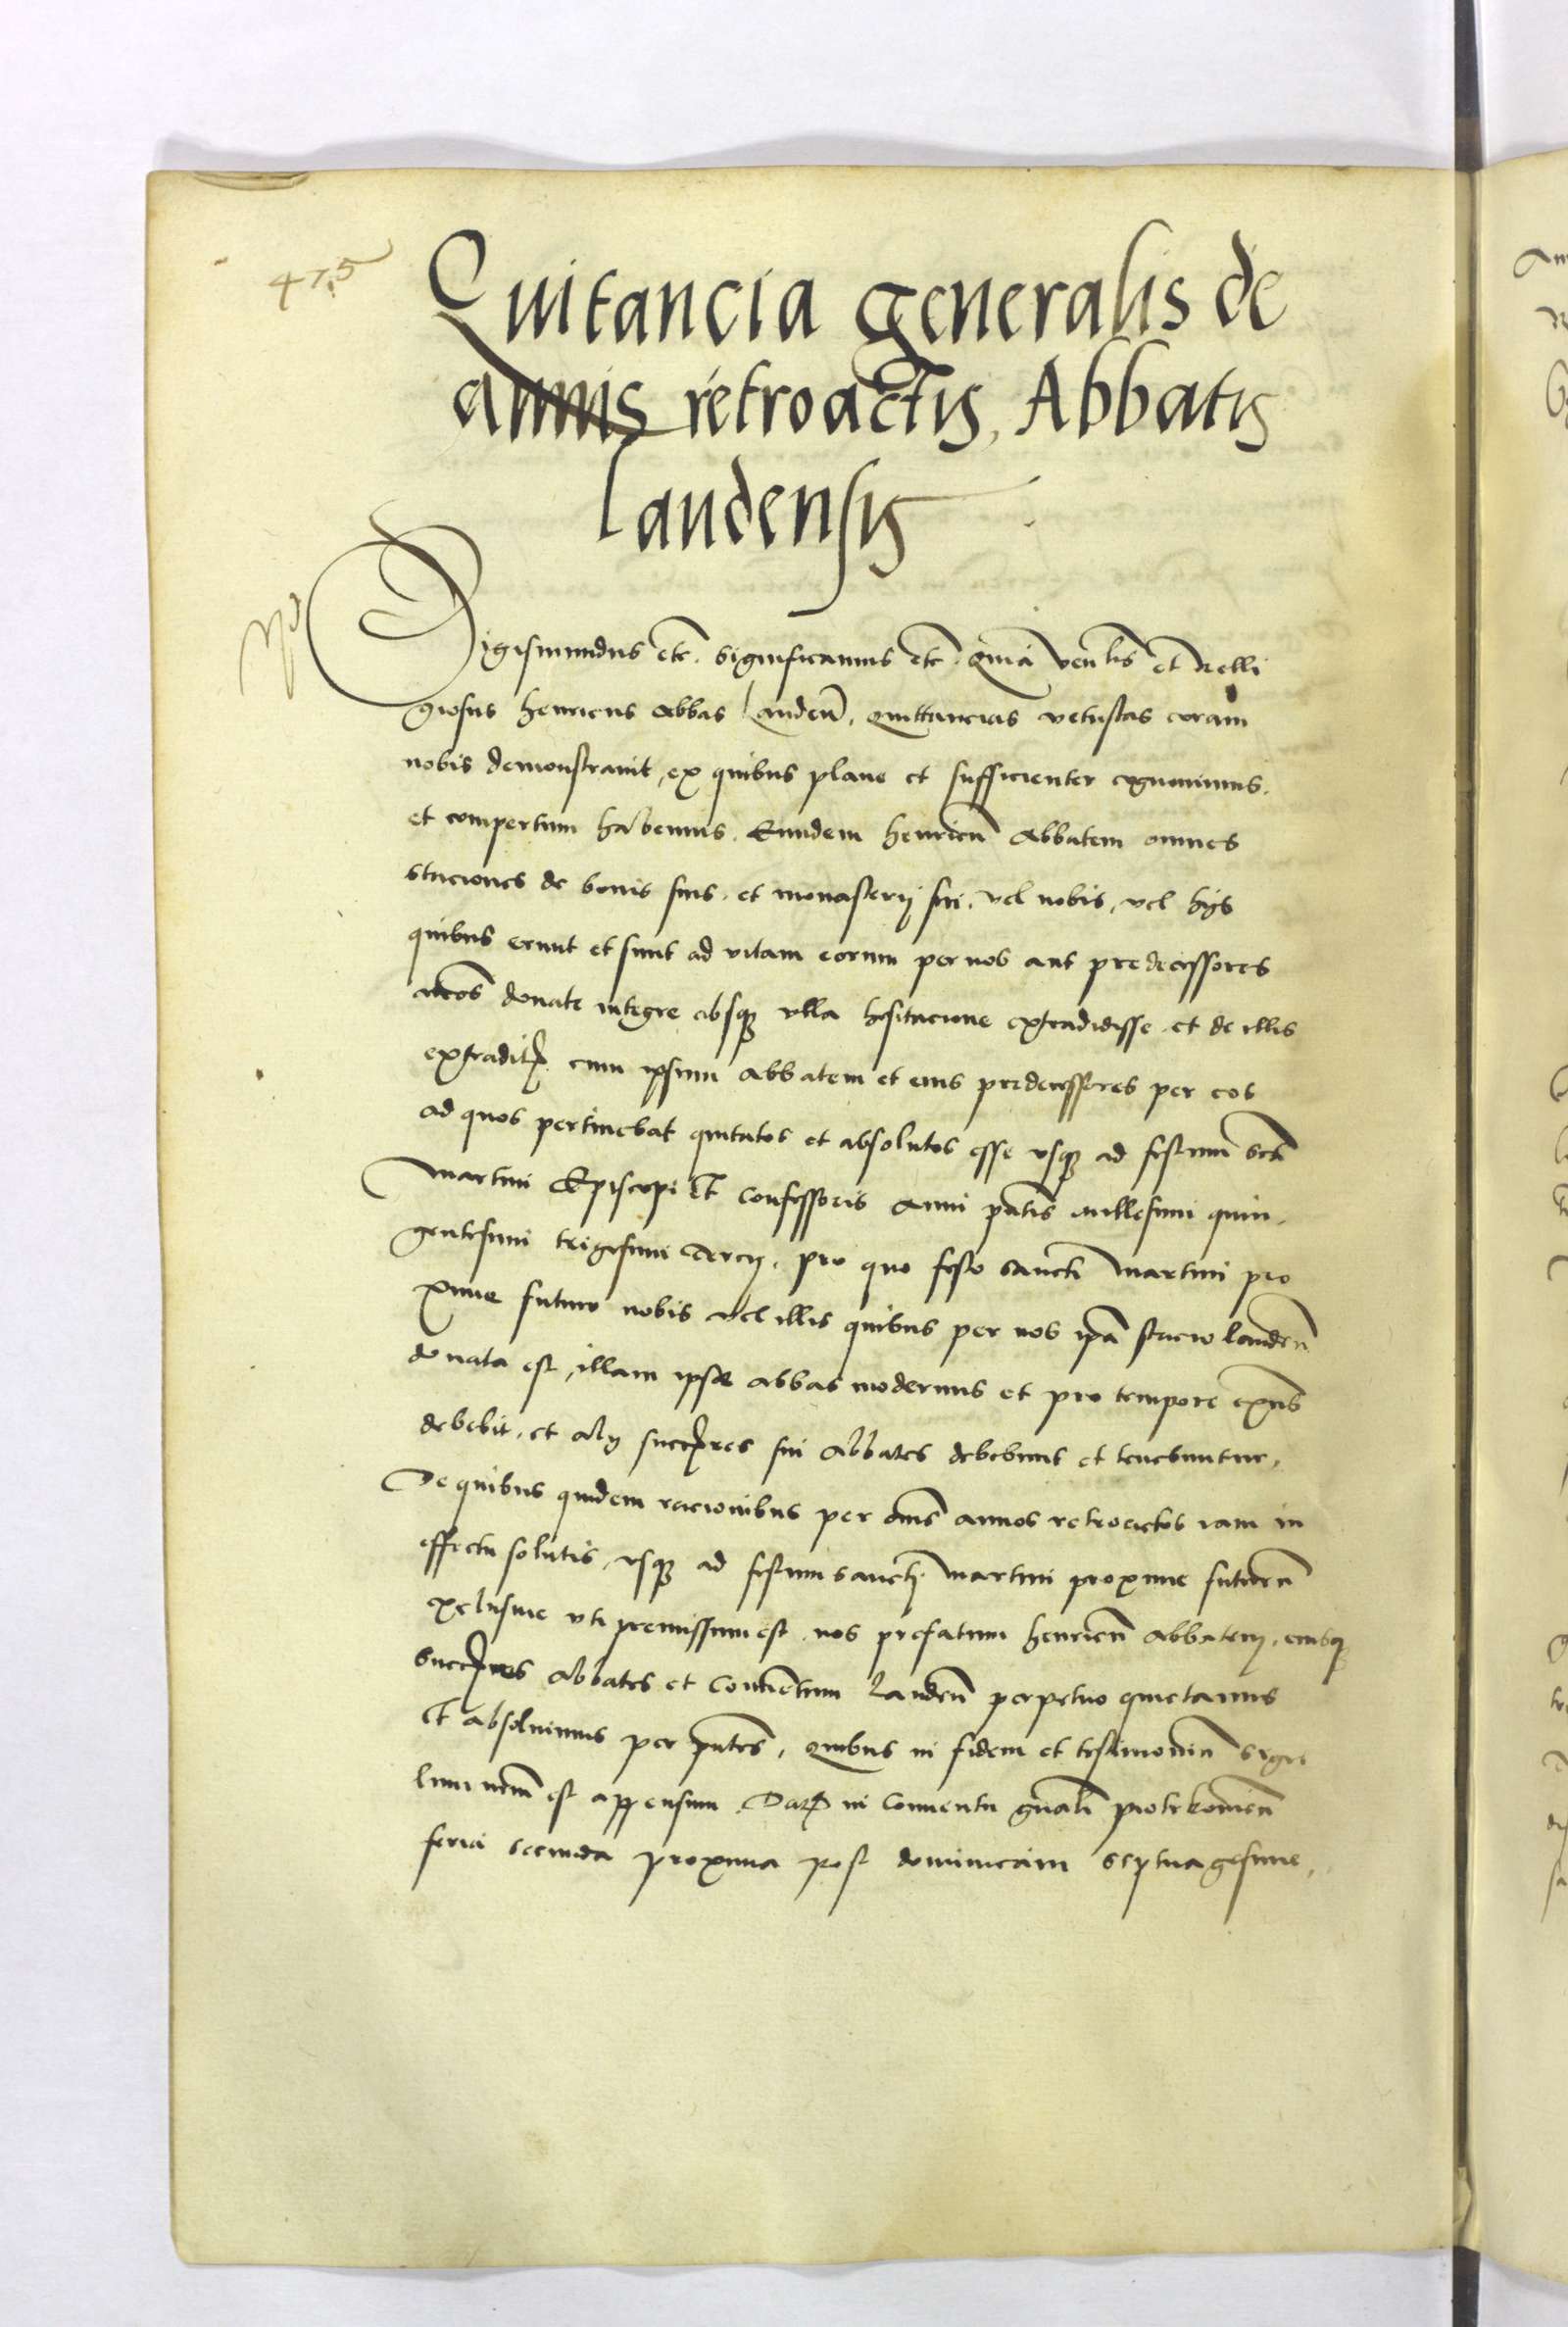 475
Quitancia generalis de
annis retroactis, Abbatis
Landensis
Sigismundus etc. significamus etc. Quia venlis et Relli
giosus henricus Abbas Landen̄, quittancias vetustas coram
nobis demonstravit, ex quibus plane et sufficienter cognovimus.
et compertum habemus. Eundem henricū Abbatem omnes
staciones de bonis suis. et monasterij sui. vel nobis, vel hijs
quibus erunt et sunt ad vitam eorum per nos aut predecessores
nrōs donate integre absq̨ ulla hesitacione extradidisse. et de illis
extradit̨ cum ipsum Abbatem et eius predecessores per eos
ad quos pertinebat quitatos et absolutos esse usq̨ ad festum scti
Martini Episcopi Et Confessoris Anni pn̄tis millesimi quin-
gentesimi trigesimi tercij. pro quo festo sancti Martini pro
xime futuro nobis vel illis quibus per nos ipā stacio landen̄
donata est, illam ipse Abbas modernus et pro tempore exn̄s
debebit. et alij succe̷res sui Abbates debebunt et tenebuntur.
De quibus quidem racionibus per oms̄ annos retroactos iam in
effectu solutis, usq̨ ad festum sancti Martini proxime futurū
xclusive uti premissum est. nos prefatum henricū Abbatem. eiusq̨
succe̷res Abbates et Conventum Landen̄ perpetuo quietamus
Et absolvimus per pn̄tes, quibus in fidem et testimoniū sigi
lum nrm̄ est appensum. Dat̨ in Conventu gn̄ali Piotrkovien̄
feria secunda proxima post dominicam septuagesime,